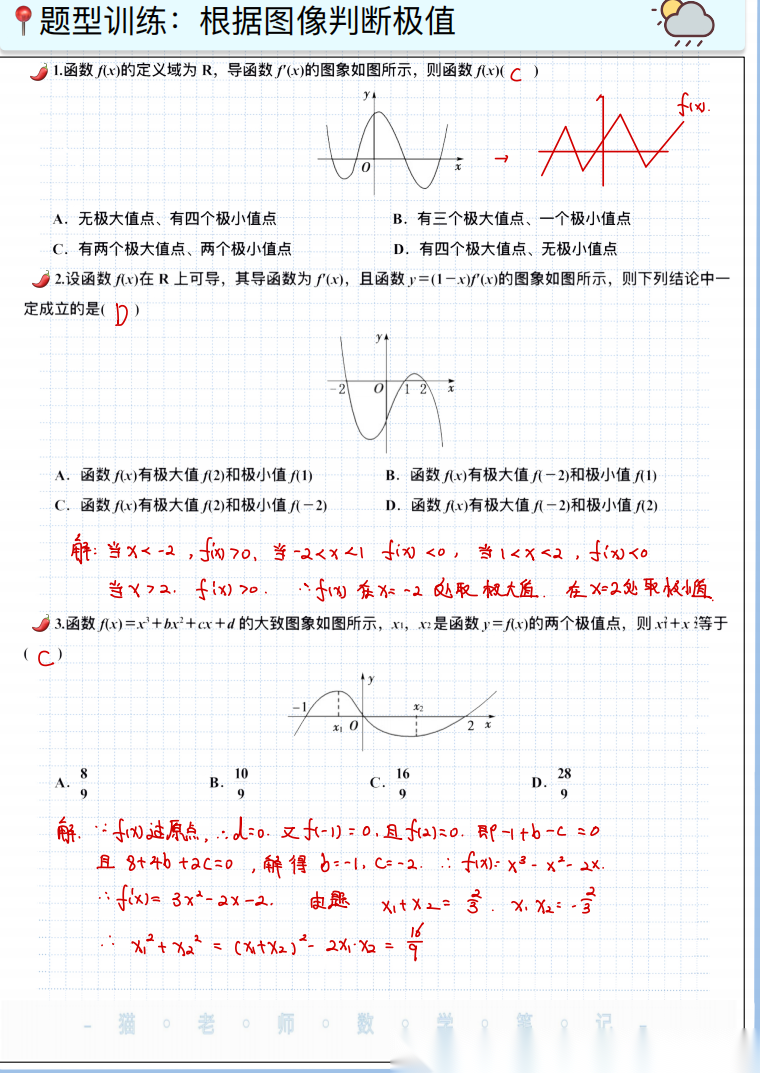 题型训练：根据图像判断极值
1.函数 f(x)的定义域为 R，导函数 f′(x)的图象如图所示，则函数 f(x)( C )
y
O
x
→
f(x).
A．无极大值点、有四个极小值点
B．有三个极大值点、一个极小值点
C．有两个极大值点、两个极小值点
D．有四个极大值点、无极小值点
2.设函数 f(x)在 R 上可导，其导函数为 f′(x)，且函数 y＝(1－x)f′(x)的图象如图所示，则下列结论中一
定成立的是( D )
y
－2 O 1 2 x
A．函数 f(x)有极大值 f(2)和极小值 f(1)
B．函数 f(x)有极大值 f(－2)和极小值 f(1)
C．函数 f(x)有极大值 f(2)和极小值 f(－2)
D．函数 f(x)有极大值 f(－2)和极小值 f(2)
解：当x<-2，f′(x)>0，当-2<x<1 f′(x)<0，当1<x<2，f′(x)<0
当x>2. f′(x)>0. ∴f(x)在x=-2处取极大值．在x=2处取极小值
3.函数 f(x)＝x³＋bx²＋cx＋d 的大致图象如图所示，x₁，x₂是函数 y＝f(x)的两个极值点，则 x₁²＋x₂²等于
( C )
y
－1 x₂
x₁ O 2 x
A．8/9
B．10/9
C．16/9
D．28/9
解．∵f(x)过原点，∴d=0. 又f(-1)=0，且f(2)=0. 即-1+b-c=0
且 8+4b+2c=0，解得b=-1，c=-2. ∴f(x)=x³-x²-2x.
∴f′(x)=3x²-2x-2. 由题 x₁+x₂=2/3. x₁x₂=-2/3
∴ x₁²+x₂²=(x₁+x₂)²-2x₁·x₂=16/9
- 猫 ○ 老 ○ 师 ○ 数 ○ 学 ○ 笔 ○ 记 -